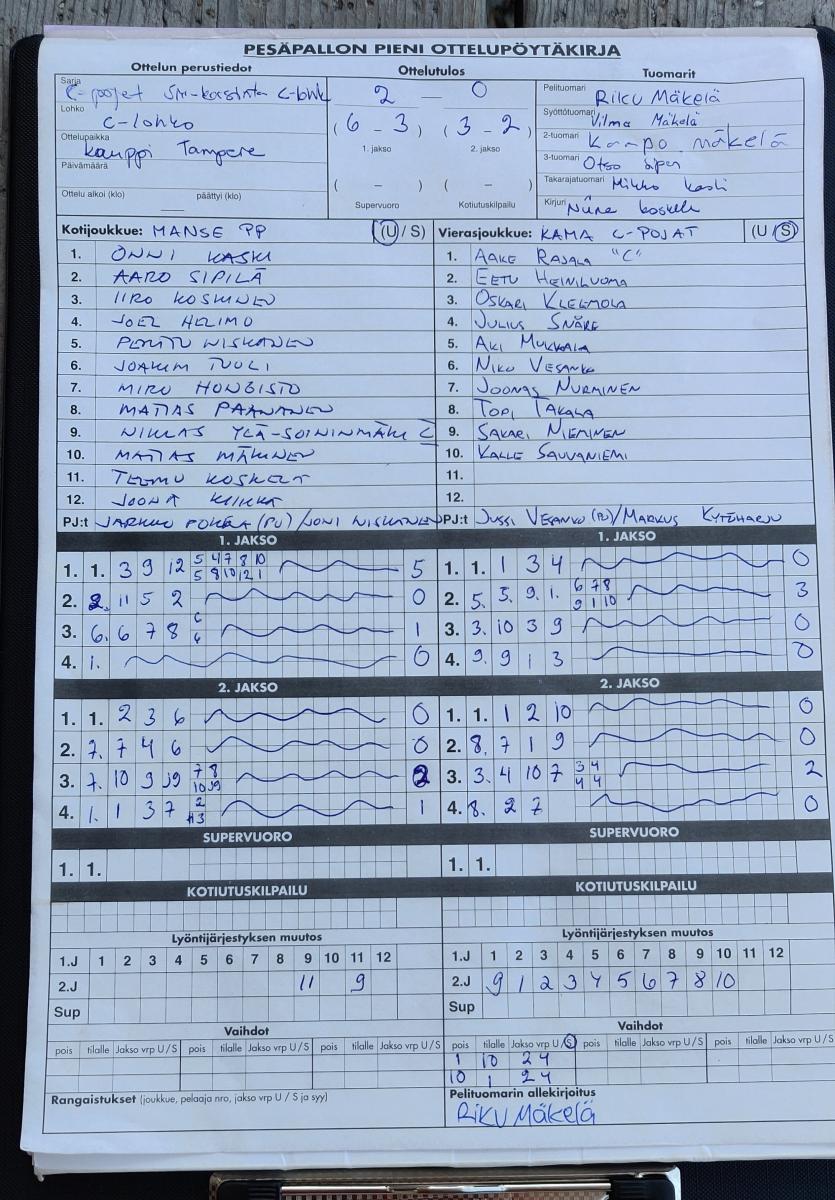 PESÄPALLON PIENI OTTELUPÖYTÄKIRJA
Ottelun perustiedot Ottelutulos Tuomarit
Sarja C-pojat
Lohko C-lohko
Ottelupaikka Kauppi Tampere
Päivämäärä
Ottelu alkoi (klo) päättyi (klo)
2 — 0
(6 - 3) (3 - 2)
1. jakso 2. jakso
( - ) ( - )
Supervuoro Kotiutuskilpailu
Pelituomari Riku Mäkelä
Syöttötuomari Vilma Mäkelä
2-tuomari Mäkelä
3-tuomari Otso
Takarajatuomari Mikko
Kirjuri
Kotijoukkue: MANSE PP (U / S)
1. ONNI KASKI
2. AARO SIPILÄ
3. IIRO KOSKINEN
4. JOEL HELIMO
5. PENTTU NISKANEN
6. JOAKIM TUOLI
7. MIRO HONGISTO
8. MATIAS PAANANEN
9. NIKLAS YLÄ-SOININMÄKI C
10. MATIAS MÄKINEN
11. TEEMU KOSKELA
12. JOONA
PJ:t JARKKO POKELA (PJ) / JONI NISKANEN
Vierasjoukkue: KAMA C-POJAT (U / S)
1. AAKE RAJALA "C"
2. EETU HEINILUOMA
3. OSKARI KLEEMOLA
4. JULIUS SNÅRE
5. AKI MUKKALA
6. NIKO VESANKO
7. JOONAS NURMINEN
8. TOPI TAKALA
9. SAKARI NIEMINEN
10. KALLE SAUVANIEMI
11.
12.
PJ:t JUSSI VESANKO (PJ) / MARKUS KYTÖHARJU
1. JAKSO
1. 1. 3 9 12 5 4 7 8 10 5
5 8 10 12 1
2. 2. 11 5 2 0
3. 6. 6 7 8 6 1
4. 1. 0
1. JAKSO
1. 1. 1 3 4 0
2. 5. 5. 9. 1. 6 7 8 3
9 1 10
3. 3. 10 3 9 0
4. 9. 9 1 3 0
2. JAKSO
1. 1. 2 3 6 0
2. 7. 7 4 6 0
3. 7. 10 9 J9 7 8 2
10 J9
4. 1. 1 3 7 2 1
3
2. JAKSO
1. 1. 1 2 10 0
2. 8. 7 1 9 0
3. 3. 4 10 7 3 4 2
4 4
4. 8. 2 7 0
SUPERVUORO
1. 1.
SUPERVUORO
1. 1.
KOTIUTUSKILPAILU
KOTIUTUSKILPAILU
Lyöntijärjestyksen muutos
1.J 1 2 3 4 5 6 7 8 9 10 11 12
2.J 11 9
Sup
Lyöntijärjestyksen muutos
1.J 1 2 3 4 5 6 7 8 9 10 11 12
2.J 9 1 2 3 4 5 6 7 8 10
Sup
Vaihdot
pois tilalle Jakso vrp U / S pois tilalle Jakso vrp U / S pois tilalle Jakso vrp U / S
Vaihdot
pois tilalle Jakso vrp U / S pois tilalle Jakso vrp U / S pois tilalle Jakso vrp U / S
1 10 2 4
10 1 2 4
Rangaistukset (joukkue, pelaaja nro, jakso vrp U / S ja syy)
Pelituomarin allekirjoitus
Riku Mäkelä